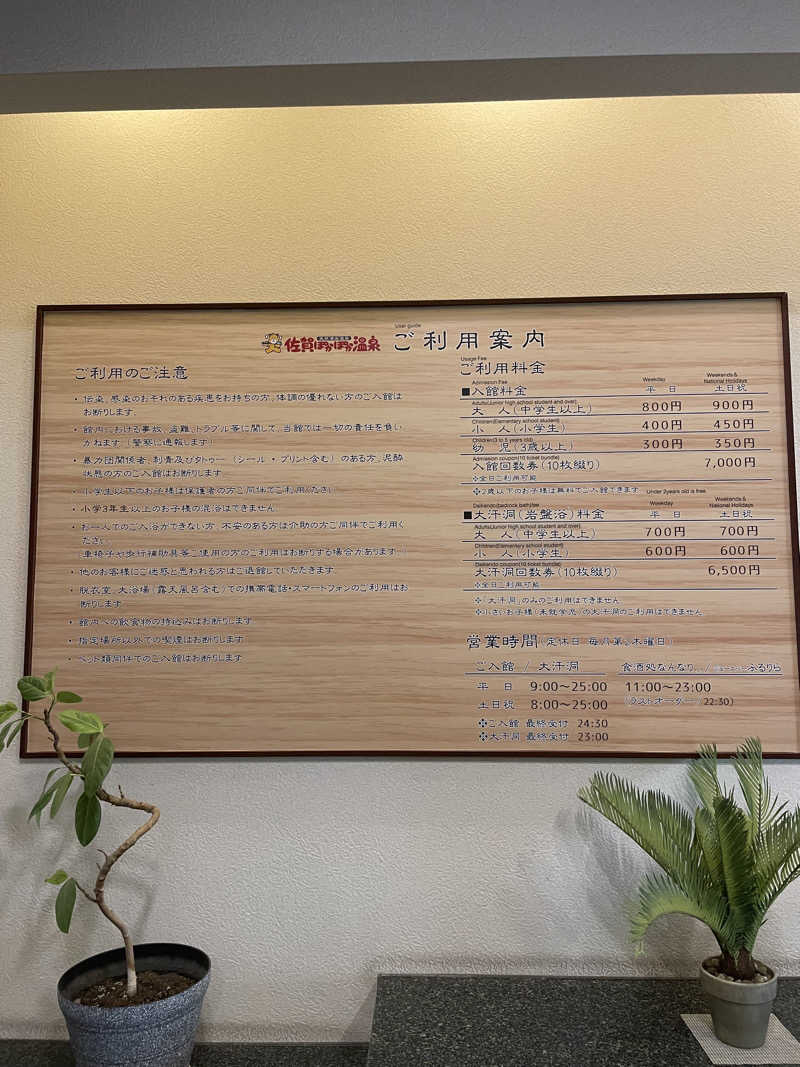 User guide
佐賀ぽかぽか温泉 ご利用案内
ご利用のご注意
・伝染、感染のおそれのある疾患をお持ちの方、体調の優れない方のご入館は
お断りします。
・館内における事故、盗難、トラブル等に関して、当館では一切の責任を負い
かねます（警察に通報します）
・暴力団関係者、刺青及びタトゥー（シール・プリント含む）のある方、泥酔
状態の方のご入館はお断りします
・小学生以下のお子様は保護者の方ご同伴でご利用ください
・小学3年生以上のお子様の混浴はできません
・お一人でのご入浴ができない方、不安のある方は介助の方ご同伴でご利用く
ださい
（車椅子や歩行補助具等ご使用の方のご利用はお断りする場合があります）
・他のお客様にご迷惑と思われる方はご退館していただきます
・脱衣室、大浴場（露天風呂含む）での携帯電話・スマートフォンのご利用はお
断りします
・館内への飲食物の持込みはお断りします
・指定場所以外での喫煙はお断りします
・ペット類同伴でのご入館はお断りします
Usage Fee
ご利用料金
Admission Fee Weekday Weekends & National Holidays
■入館料金 平 日 土日祝
Adults(Junior high school student and over)
大 人（中学生以上） 800円 900円
Children(Elementary school student)
小 人（小学生） 400円 450円
Children(3 to 5 years old)
幼 児（3歳以上） 300円 350円
Admission coupon(10 ticket bundle)
入館回数券（10枚綴り） 7,000円
※全日ご利用可能
※2歳以下のお子様は無料でご入館できます Under 2years old is free.
Daikando(bedrock bath)fee Weekday Weekends & National Holidays
■大汗洞（岩盤浴）料金 平 日 土日祝
Adults(Junior high school student and over)
大 人（中学生以上） 700円 700円
Children(Elementary school student)
小 人（小学生） 600円 600円
Daikando coupon(10 ticket bundle)
大汗洞回数券（10枚綴り） 6,500円
※全日ご利用可能
※「大汗洞」のみのご利用はできません
※小さいお子様（未就学児）の大汗洞のご利用はできません
営業時間（定休日 毎月第 木曜日）
ご入館 / 大汗洞 食酒処なんなり / ふるりら
平 日 9:00〜25:00 11:00〜23:00
土日祝 8:00〜25:00 （ラストオーダー 22:30）
※ご入館 最終受付 24:30
※大汗洞 最終受付 23:00